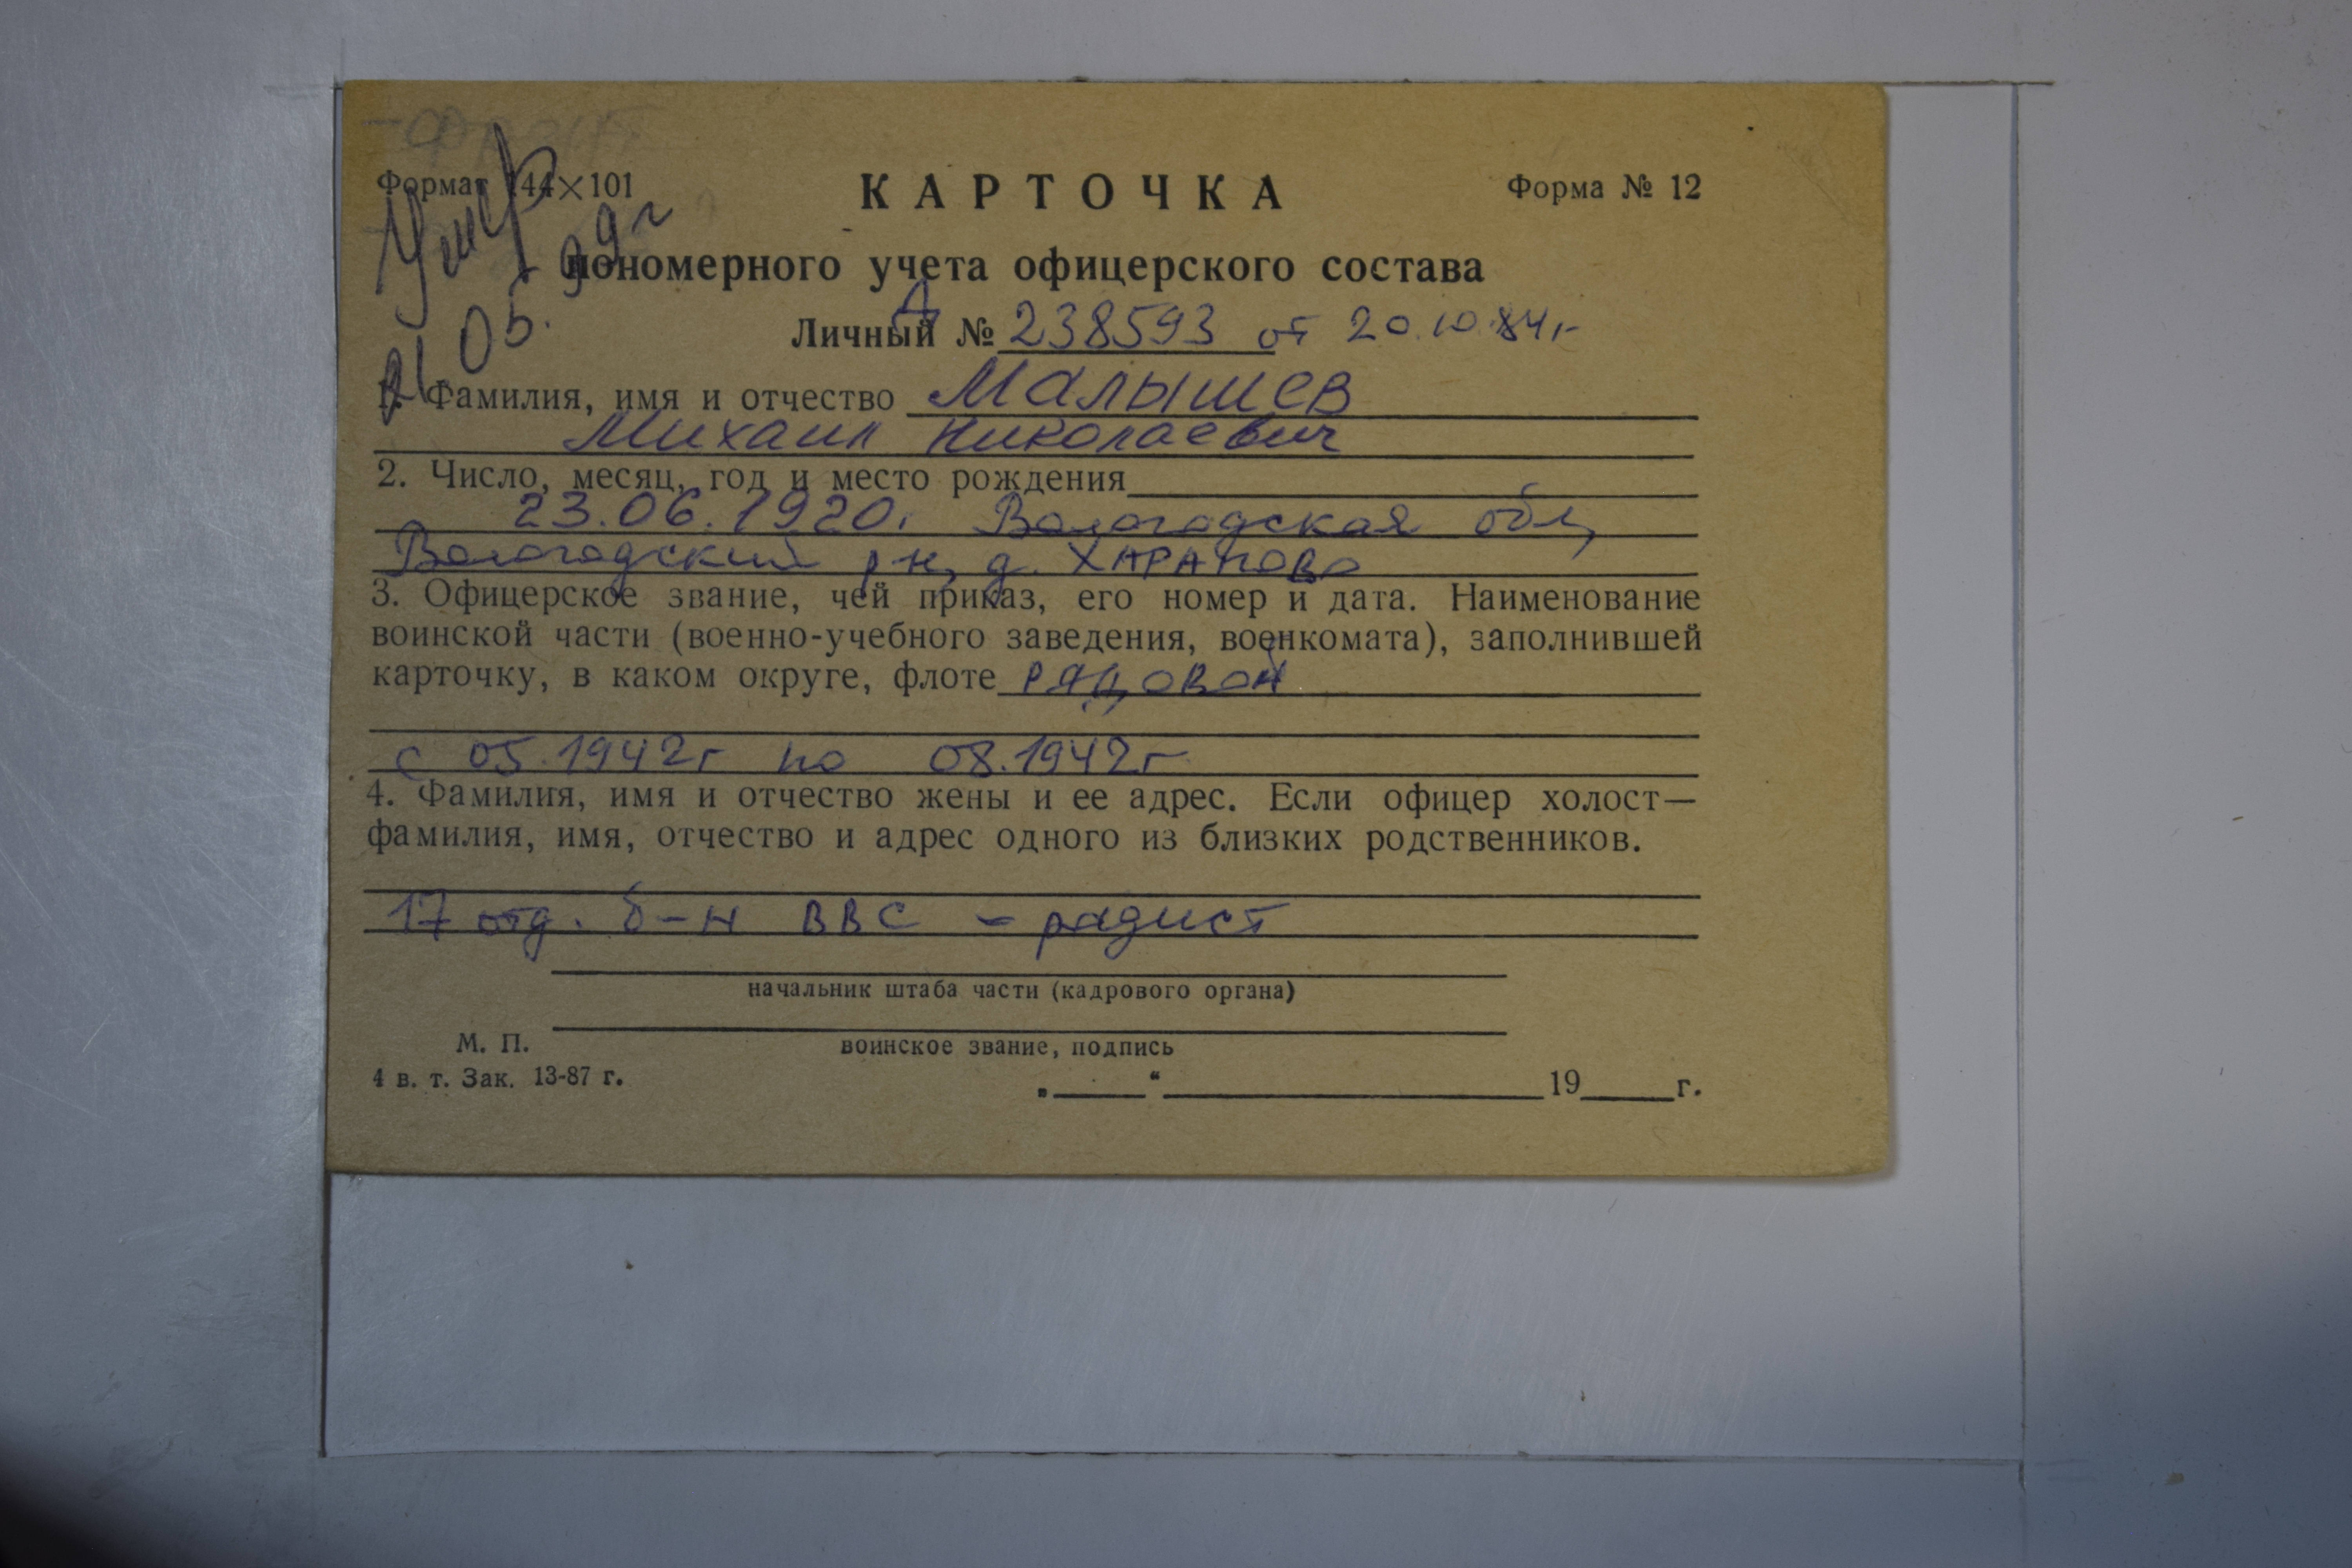 Формат 144×101
КАРТОЧКА
Форма № 12
Умер
21.05.99г
пономерного учета офицерского состава
Личный № Д 238593 от 20.10.84г
1. Фамилия, имя и отчество Малышев
Михаил Николаевич
2. Число, месяц, год и место рождения
23.06.1920. Вологодская обл,
Вологодский р-н, д. ХАРАПОВО
3. Офицерское звание, чей приказ, его номер и дата. Наименование
воинской части (военно-учебного заведения, военкомата), заполнившей
карточку, в каком округе, флоте РЯДОВОЙ
с 05.1942г по 08.1942г
4. Фамилия, имя и отчество жены и ее адрес. Если офицер холост—
фамилия, имя, отчество и адрес одного из близких родственников.
17 отд. б-н ВВС - радист
начальник штаба части (кадрового органа)
М. П.
воинское звание, подпись
4 в. т. Зак. 13-87 г.
„____“ ____________ 19____г.